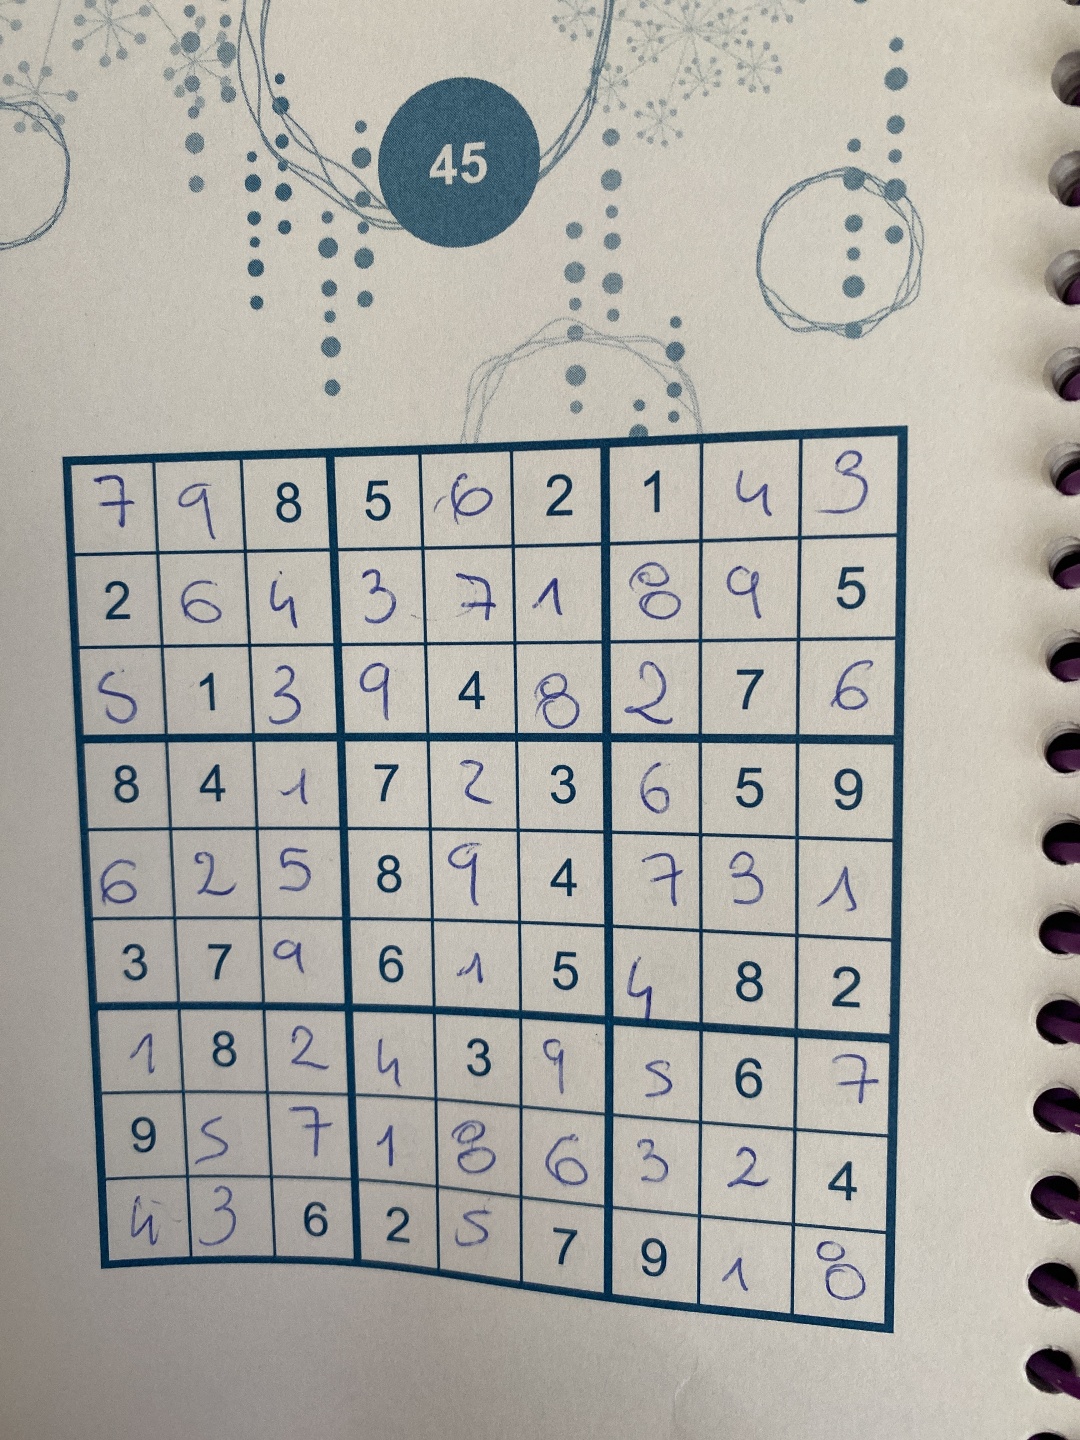 45
7 9 8 5 6 2 1 4 3
2 6 4 3 7 1 8 9 5
5 1 3 9 4 8 2 7 6
8 4 1 7 2 3 6 5 9
6 2 5 8 9 4 7 3 1
3 7 9 6 1 5 4 8 2
1 8 2 4 3 9 5 6 7
9 5 7 1 8 6 3 2 4
4 3 6 2 5 7 9 1 8